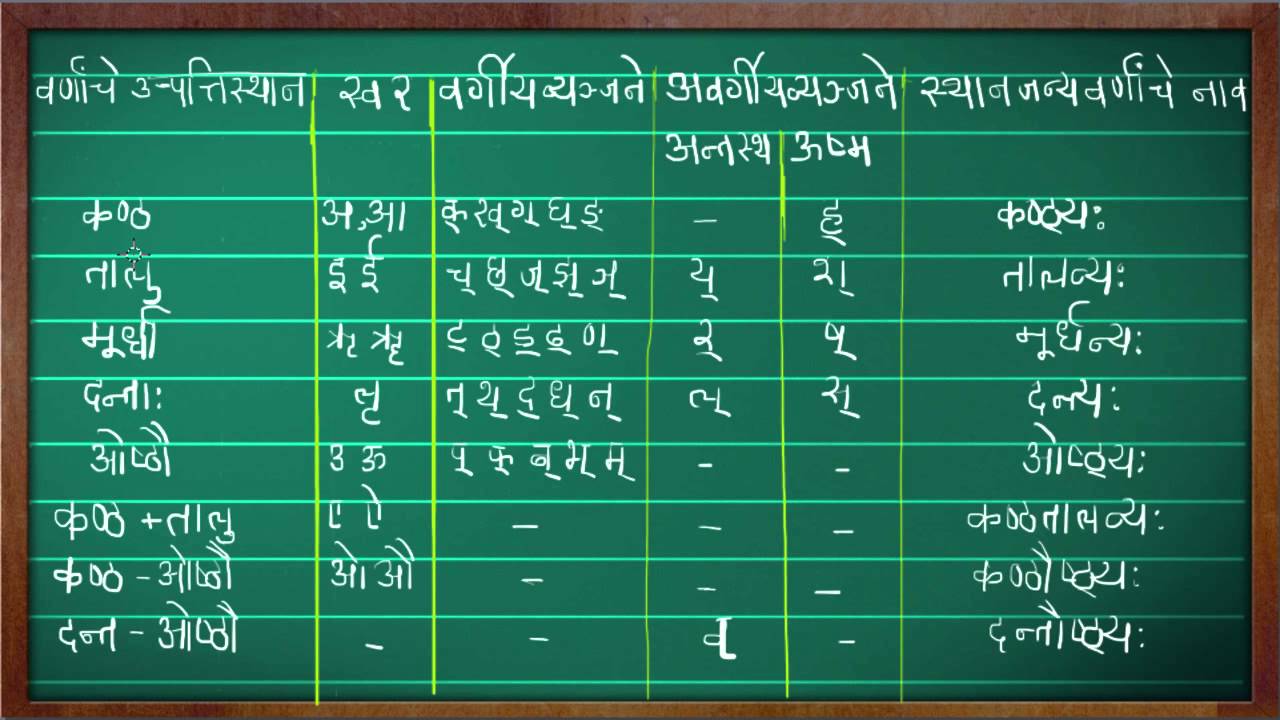 वर्णांचे उत्पत्तिस्थान स्वर वर्गीयव्यञ्जने अवर्गीयव्यञ्जने स्थानजन्यवर्णांचे नाव
अन्तस्थ ऊष्म
कण्ठ अ,आ क् ख् ग् घ् ङ् - ह् कण्ठ्यः
तालु इ ई च् छ् ज् झ् ञ् य् श् तालव्यः
मूर्धा ऋ ॠ ट् ठ् ड् ढ् ण् र् ष् मूर्धन्यः
दन्ताः लृ त् थ् द् ध् न् ल् स् दन्त्यः
ओष्ठौ उ ऊ प् फ् ब् भ् म् - - ओष्ठ्यः
कण्ठ + तालु ए ऐ - - - कण्ठतालव्यः
कण्ठ - ओष्ठौ ओ औ - - - कण्ठौष्ठ्यः
दन्त - ओष्ठौ - - व् - दन्तौष्ठ्यः